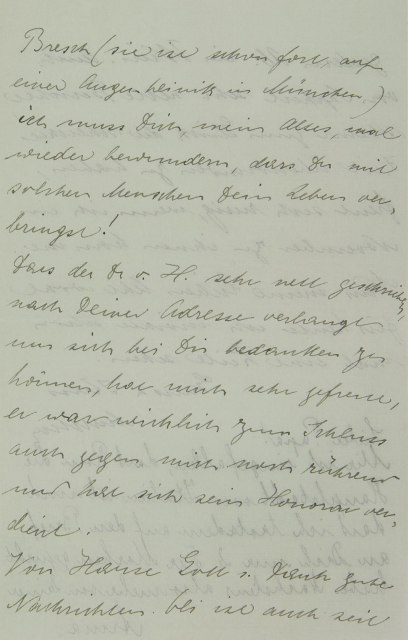 Bresch (sie ist schon fort, auf
einer Augenklinik in München.)
ich muss Dich, mein Altes, mal
wieder bewundern, dass Du mit
solchen Menschen Dein Leben ver-
bringst!
Dass der Dr. v. H. sehr nett geschrieben,
nach Deiner Adresse verlangt
um sich bei Dir bedanken zu
können, hat mich sehr gefreut,
er war wirklich zum Schluss
auch gegen mich noch rührend
und hat sich sein Honorar ver-
dient.
Von Hause Gott s. Dank gute
Nachrichten. ist auch seit